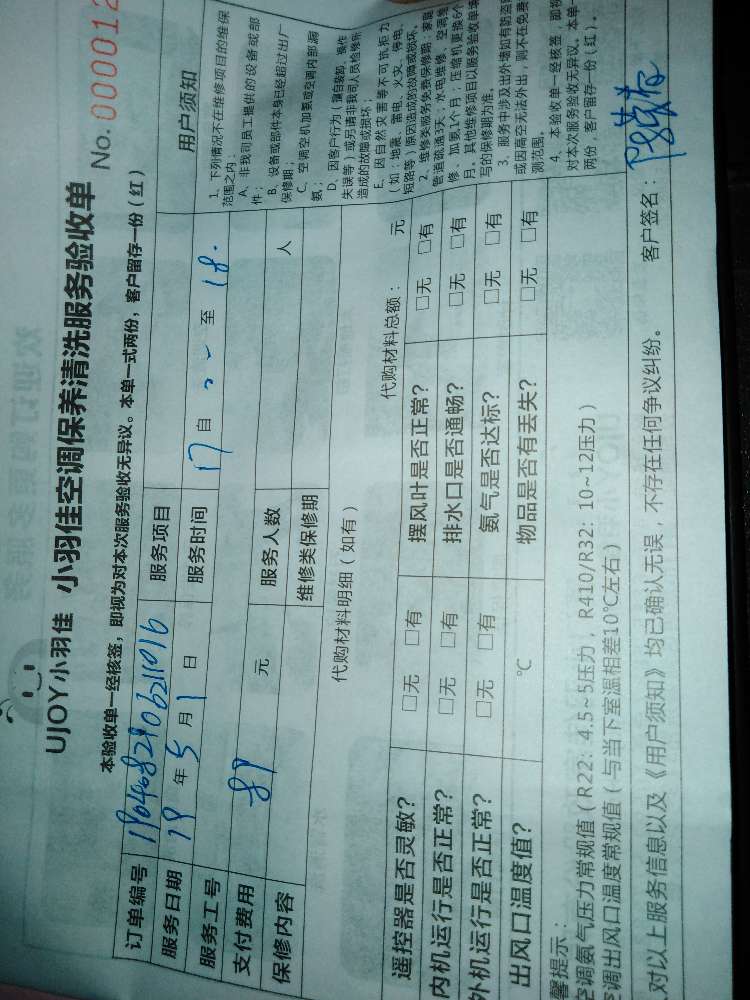 UJOY小羽佳 小羽佳空调保养清洗服务验收单 No.000012
本验收单一经核签，即视为对本次服务验收无异议。本单一式两份，客户留存一份（红）
订单编号 服务项目
服务日期 19 年 5 月 1 日 服务时间 17 自 至 18.
服务工号
支付费用 89 元 服务人数 人
保修内容 维修类保修期
用户须知
1、下列情况不在维修项目的维保
范围之内：
A、非我司员工提供的设备或部
件；
B、设备或部件本身已经超过出厂
保修期；
C、空调空机加氨或空调内部漏
氨；
D、因客户行为（擅自装卸、操作
失误等）或另请非我司人员检修所
造成的故障或损坏；
E、因自然灾害等不可抗拒力
（如：地震、雷电、火灾、停电、
短路等）原因造成的故障或损坏。
2、维修类服务免费保修期：家庭
管道疏通3天；水电维修、空调维
修、加氨1个月；压缩机更换6个
月。其他维修项目以服务验收单填
写的保修期为准。
3、服务中涉及出外墙如有防盗网
或因高空无法外出，则不在免费
测范围。
4、本验收单一经核签，即视
对本次服务验收无异议。本单一
两份，客户留存一份（红）。
代购材料明细（如有） 代购材料总额： 元
遥控器是否灵敏？ □无 □有 摆风叶是否正常？ □无 □有
内机运行是否正常？ □无 □有 排水口是否通畅？ □无 □有
外机运行是否正常？ □无 □有 氨气是否达标？ □无 □有
出风口温度值？ ℃ 物品是否有丢失？ □无 □有
馨提示：
空调氨气压力常规值（R22：4.5~5压力，R410/R32：10~12压力）
空调出风口温度常规值（与当下室温相差10℃左右）
对以上服务信息以及《用户须知》均已确认无误，不存在任何争议纠纷。 客户签名：